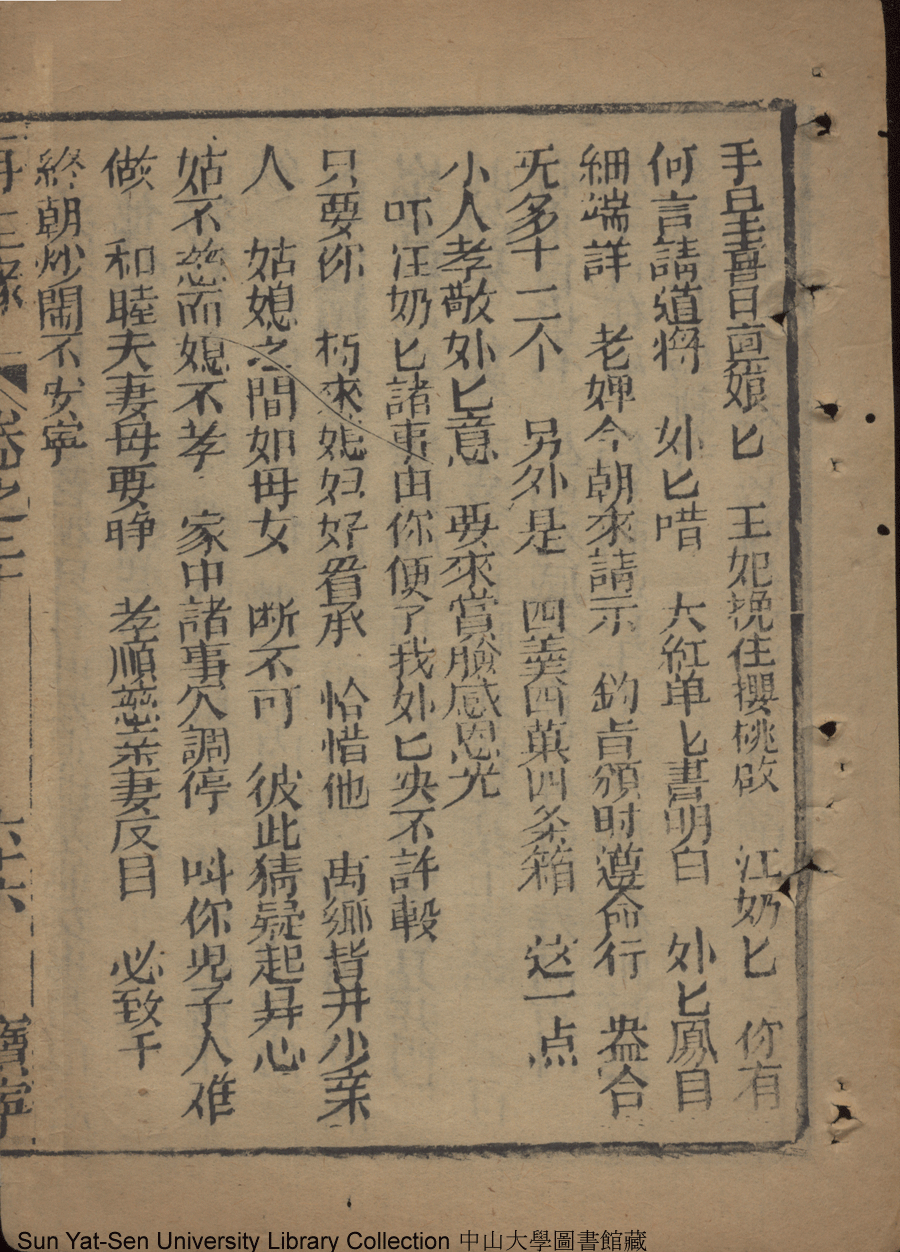 手呈書日頭娘匕　王妃挽住攖桃啟　江奶匕　你有
何言請道將　外匕唶　大紅单匕書明白　外匕鳳目
細端詳　老婢今朝來請示　鈞旨頒时遵命行　盎合
旡多十二个　另外是　四羹四菓四条箱　这一点
小人孝敬外匕意　要來當臉感恩光
吓汪奶匕諸事由你便了我外匕央不許轂
只要你　朽來媳妇好看承　恰惜他　离鄉背井少亲
人　姑媳之間如毋女　断不可　彼此猜疑起异心
姑不慈而媳不孝　家中諸事欠調停　叫你児子人难
做　和睦夫妻毋要睁　孝順慈亲妻反目　必致千
終朝炒閙不安寕
卷之三十
六十六
寶寕
Sun Yat-Sen University Library Collection 中山大學圖書館藏